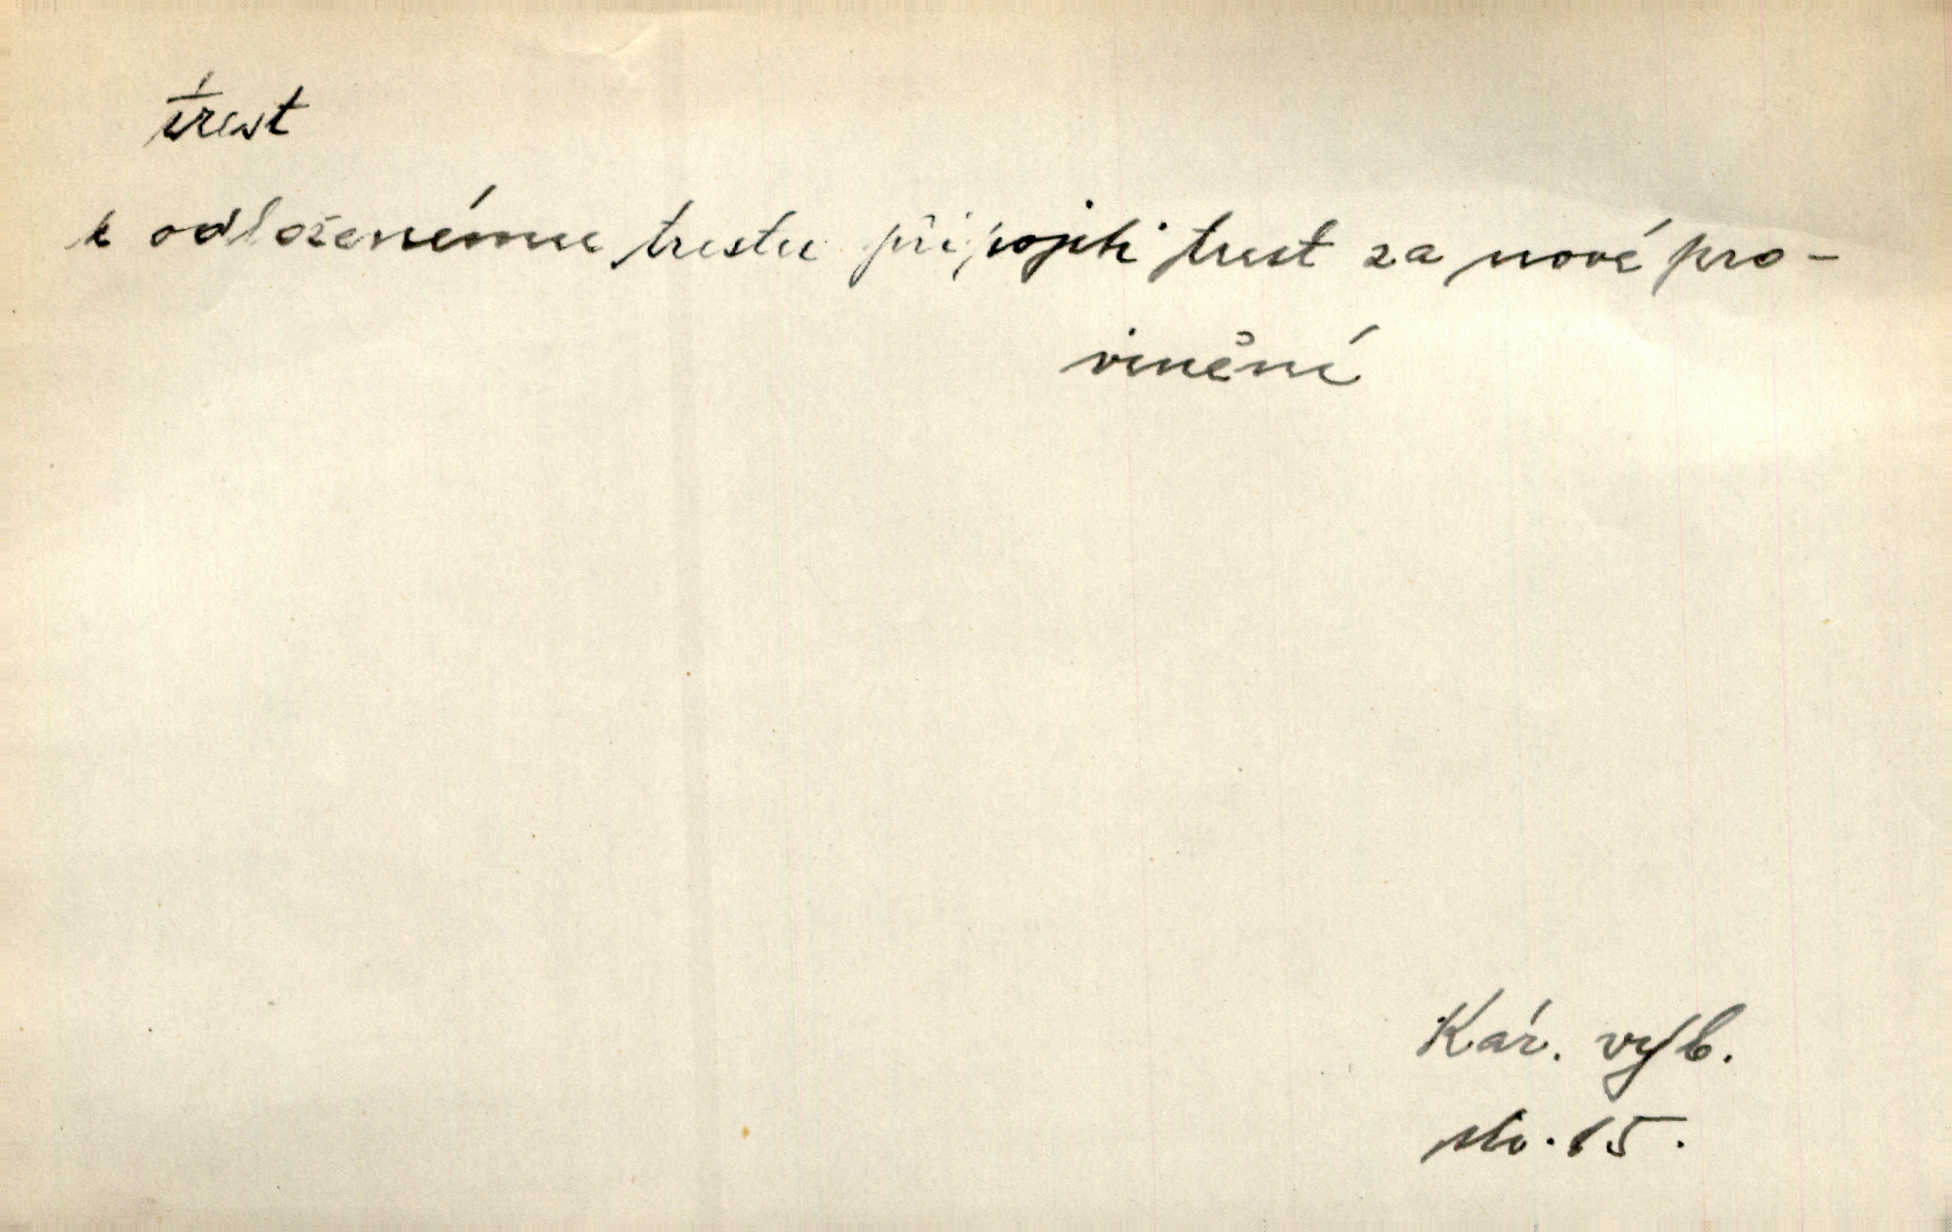 trest
k odloženému trestu připojiti trest za nové pro-
vinění
Kár. výb.
str. 15.